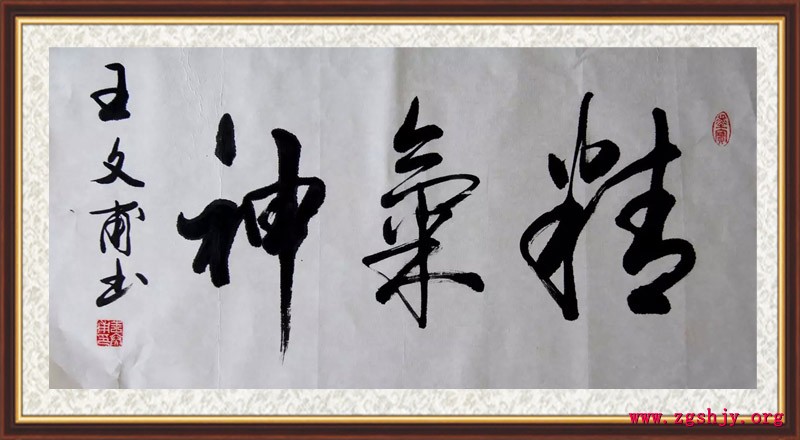 精氣神
王文甫书
www.zgshjy.org